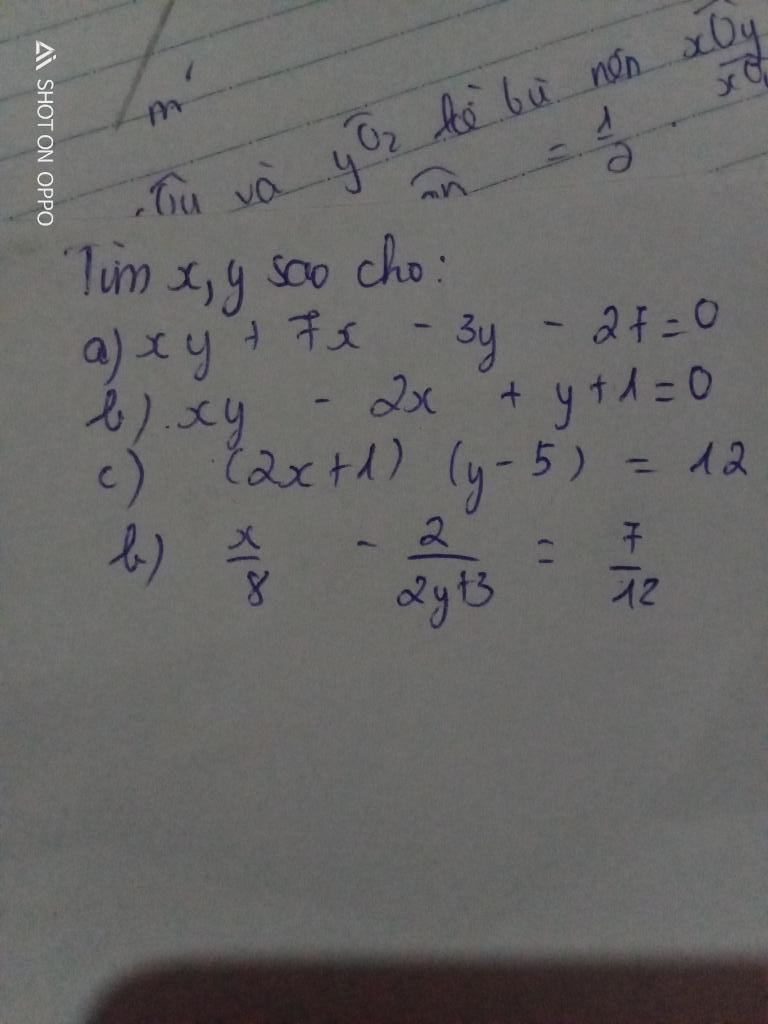 SHOT ON OPPO
m'
và yOz kề bù nên xOy
= 1/2
Tìm x, y sao cho:
a) xy + 7x - 3y - 27 = 0
b) xy - 2x + y + 1 = 0
c) (2x+1) (y-5) = 12
b) x/8 - 2/2y+3 = 7/12